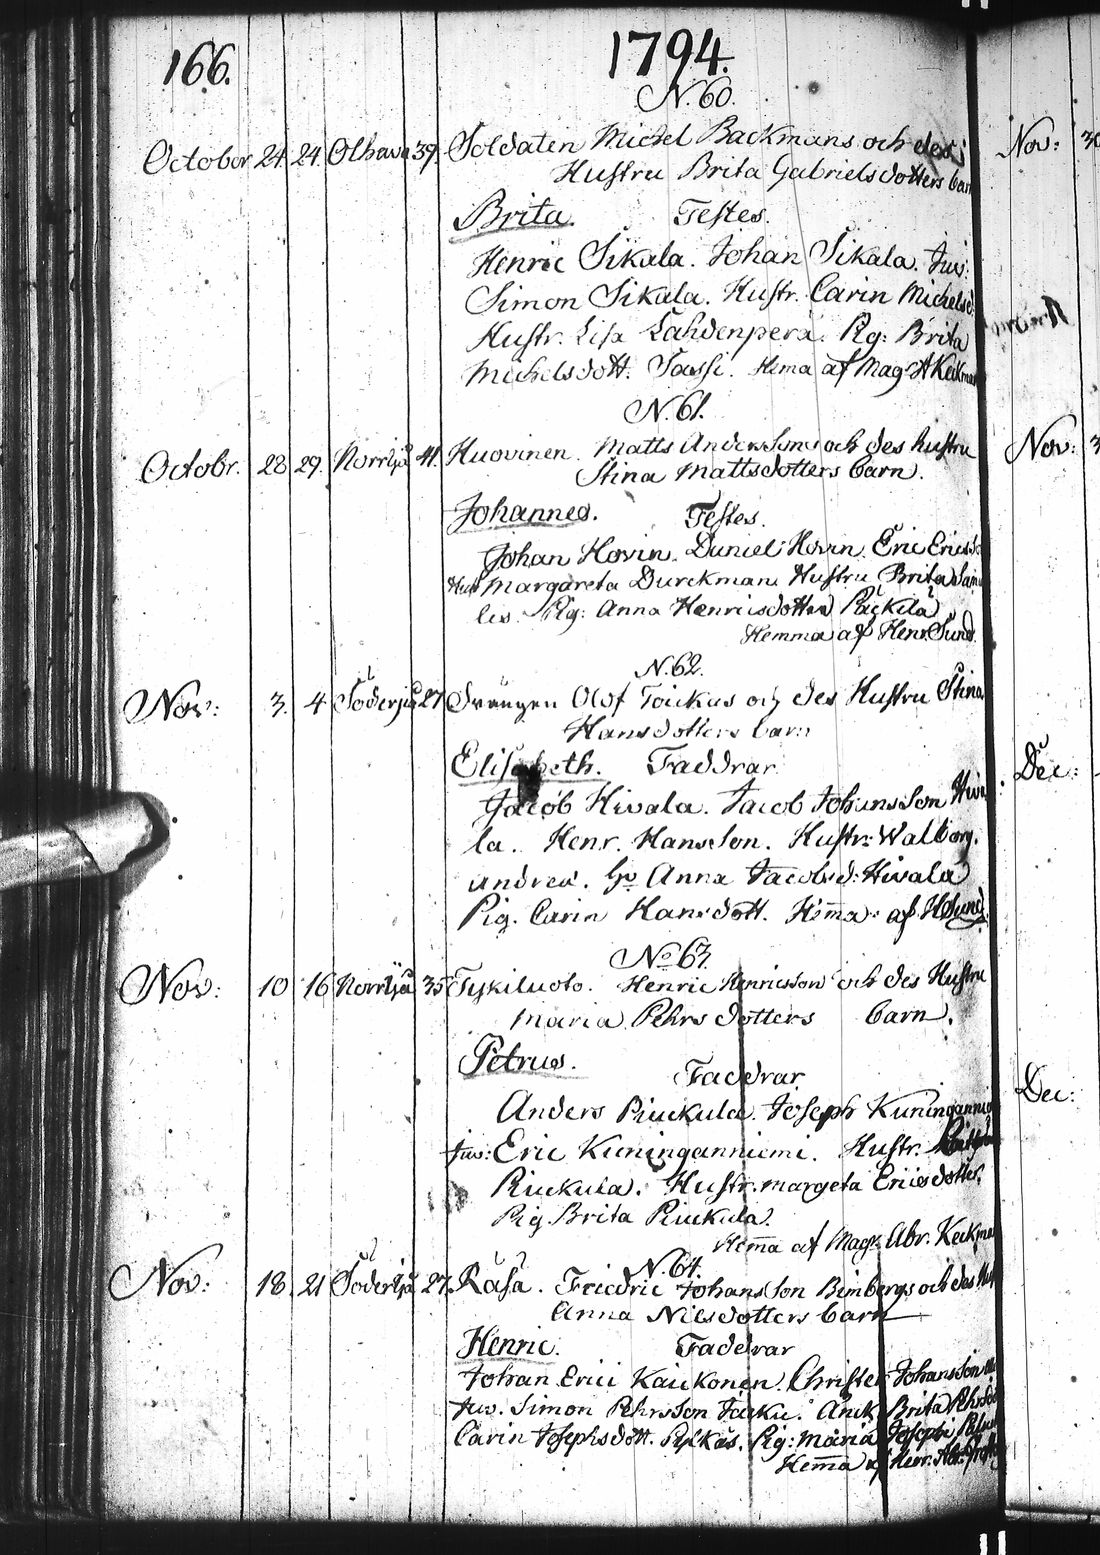 166.
1794.
N. 60.
October 24. 24. Olhava 39. Soldaten Michel Backmans och des
Hustru Brita Gabrielsdotters barn
Brita. Testes.
Henric Sikala. Johan Sikala. Juv:
Simon Sikala. Hustr. Carin Michelsd:
Hustr. Lisa Lahdenperä. Pig: Brita
Michelsdott. Sassi. Hema af Mag. A Keckman
N. 61.
Octobr. 28 29. Norrijå 41. Huovinen. Matts Anderssons och des hustru
Stina Mattsdotters barn.
Johannes. Testes.
Johan Hovin. Daniel Hovin. Eric Ericss
Hust Margareta Durckman. Hustru Brita
Pig: Anna Henricsdotter Päckilä
Hemma af Henr. Sund.
N. 62.
Nov: 3. 4 Söderijå 27 Drängen Olof Toickus och des Hustru Stina
Hansdotters barn
Elisabeth. Faddrar
Jacob Hivala. Jacob Johansson Hiva
la. Henr. Hansson. Hustr: Walborg.
Andres. Hu Anna Jacobsd: Hivala
Pig. Carin Hansdott. Hem̄a: af H Sund.
No 63.
Nov: 10 16 Norrijå 35 Tykiluoto. Henric Henricsson och des Hustru
Maria Pehrsdotters barn.
Petrus.
Faddrar
Anders Riuckula. Joseph Kuninganniemi
Juv: Eric Kuninganniemi. Hustr.
Riuckula. Hustr. Margeta Ericsdotter.
Pig. Brita Riuckula.
Hem̄a af Mag. Abr. Keckman
N. 64.
Nov: 18. 21 Söderijå 27. Räsä. Friedric Johansson Bimbergs och des Hust
Anna Nilsdotters barn
Henric. Faddrar
Johan Erici Kaickonen. Christer Johansson
Juv. Simon Pehrsson Jacku. Änck. Brita Pehrsdo
Carin Josephsdott. Pylkäs. Pig: Maria Josephs
Hem̄a af Herr. Abr.
Nov: 30
Nov: 3
Dec:
Dec: